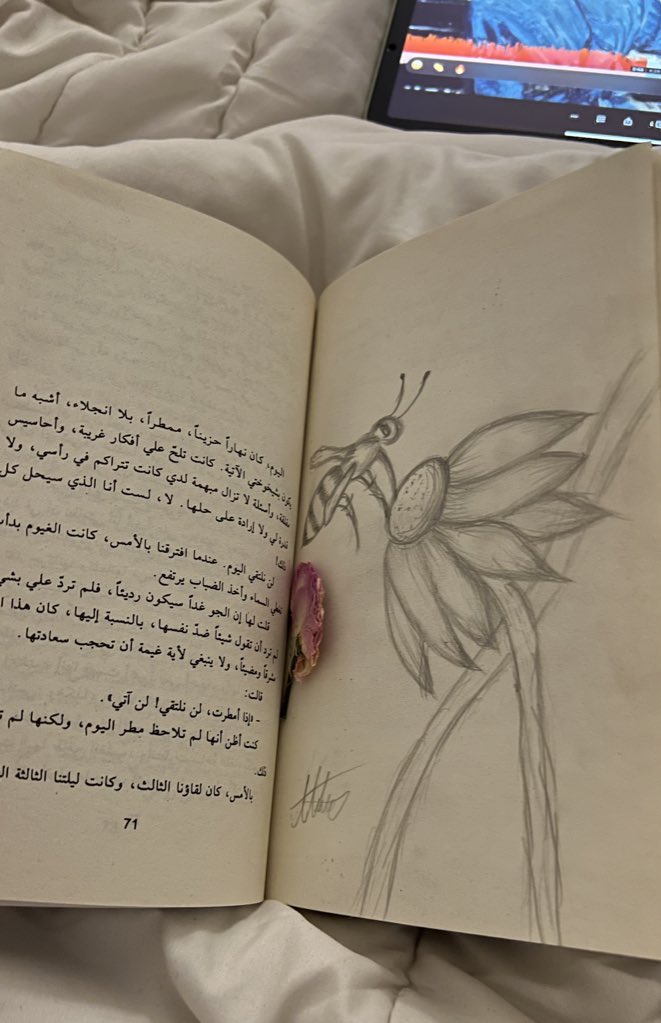 اليوم، كان نهاراً حزيناً، ممطراً، بلا انجلاء، أشبه ما
يكون بشيخوختي الآتية. كانت تلحّ علي أفكار غريبة، وأحاسيس
مقلقة، وأسئلة لا تزال مبهمة لدي كانت تتراكم في رأسي، ولا
قدرة لي ولا إرادة على حلها. لا، لست أنا الذي سيحل كل
ذلك!
لن نلتقي اليوم. عندما افترقنا بالأمس، كانت الغيوم بدأت
تغطي السماء وأخذ الضباب يرتفع.
قلت لها إن الجو غداً سيكون رديئاً، فلم تردّ علي بشي
لم ترد أن تقول شيئاً ضدّ نفسها، بالنسبة إليها، كان هذا ا
مشرقاً ومضيئاً، ولا ينبغي لأية غيمة أن تحجب سعادتها.
قالت:
- «إذا أمطرت، لن نلتقي! لن آتي».
كنت أظن أنها لم تلاحظ مطر اليوم، ولكنها لم ت
ذلك.
بالأمس، كان لقاؤنا الثالث، وكانت ليلتنا الثالثة ال
71